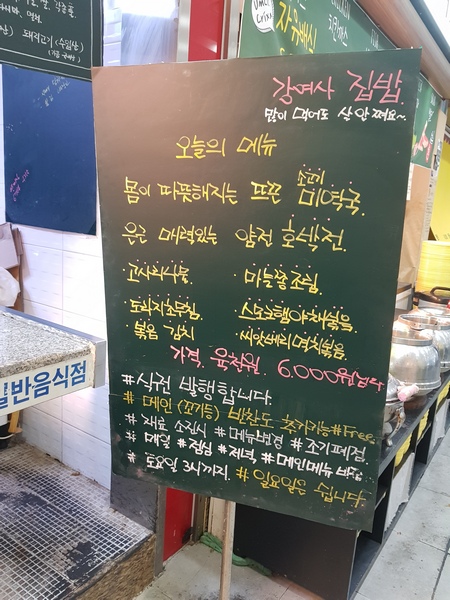 돼지고기(수입산)
강여사 집밥.
많이 먹어도 살 안 쪄요~
오늘의 메뉴
몸이 따뜻해지는 뜨끈 소고기 미역국.
은근 매력있는 얌전 호색전.
· 고사리나물 · 마늘쫑조림.
· 도라지초무침 · 스모크햄야채볶음
· 볶음 김치 · 씨앗베리멸치볶음
가격. 육천원. 6.000원입니다
#식권 발행합니다.
# 메인 (고기등) 반찬도 추가가능#Free.
# 재료 소진시 # 메뉴변경 # 조기폐점.
# 매일 # 점심 # 저녁. # 메인메뉴 바뀜.
# 토요일 3시까지. # 일요일은 쉽니다.
일반음식점